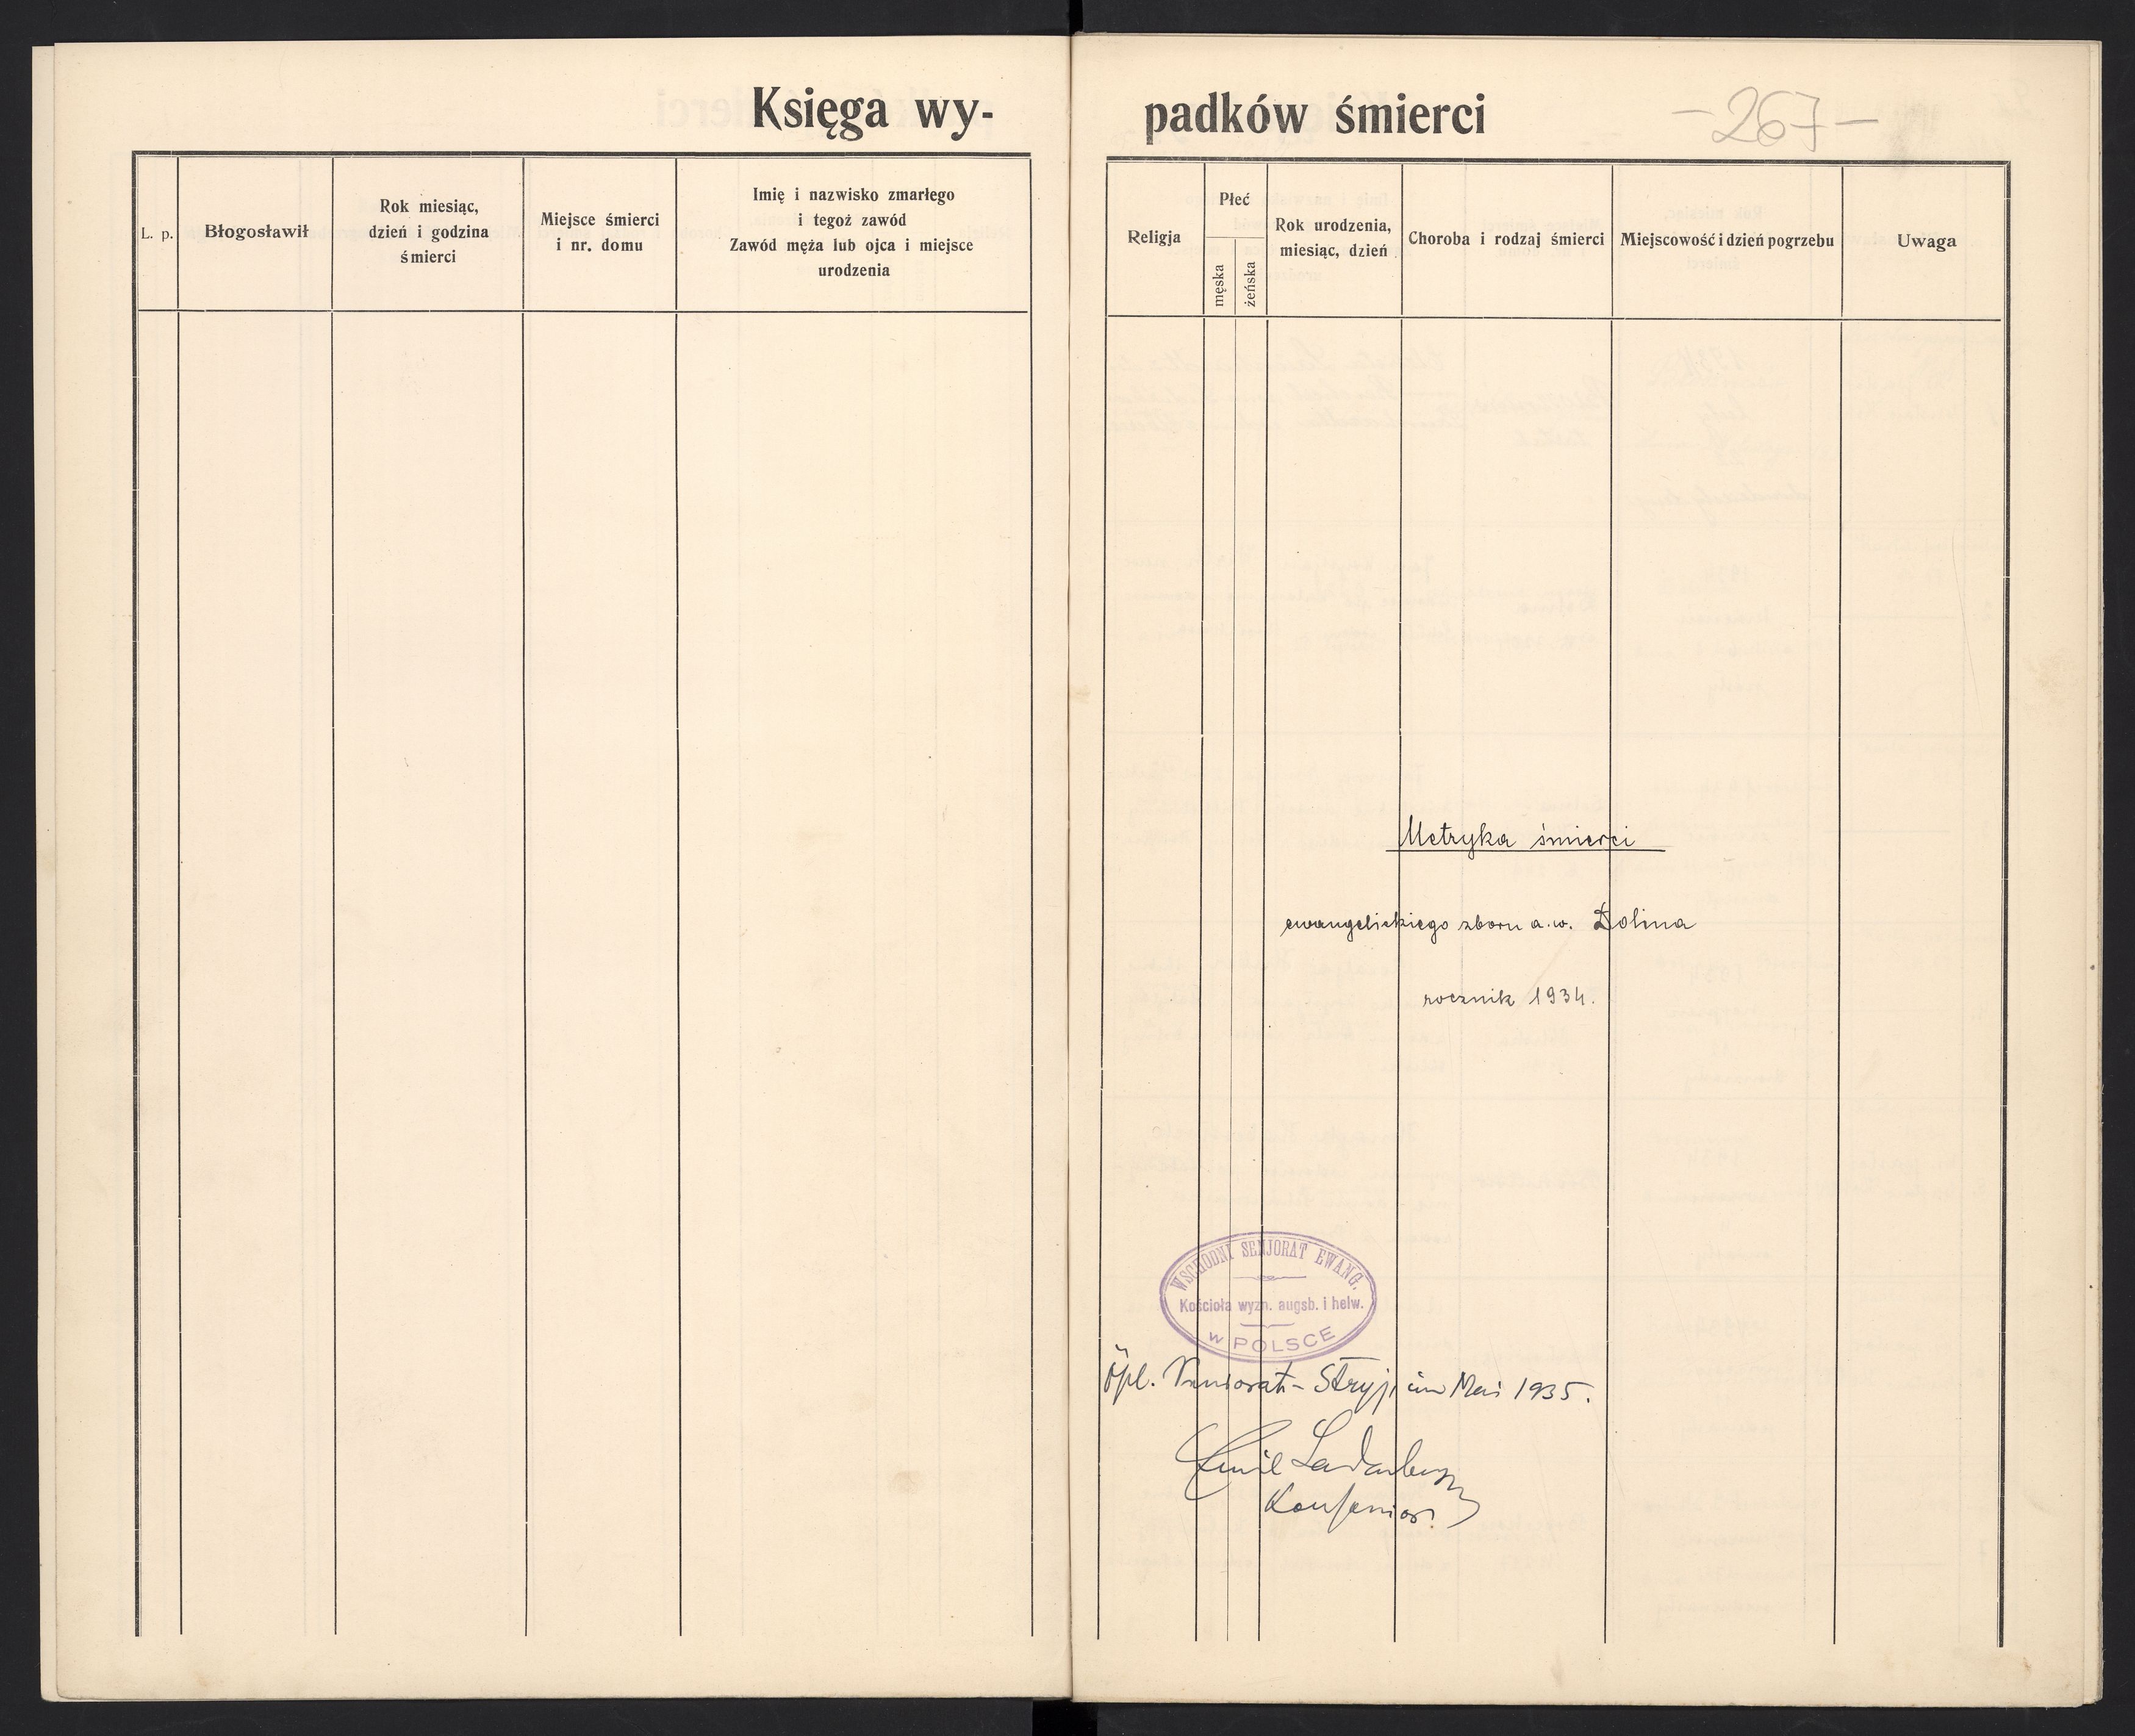 Księga wy-
padków śmierci
-267-
L. p.
Błogosławił
Rok miesiąc,
dzień i godzina
śmierci
Miejsce śmierci
i nr. domu
Imię i nazwisko zmarłego
i tegoż zawód
Zawód męża lub ojca i miejsce
urodzenia
Religja
Płeć
męska
żeńska
Rok urodzenia,
miesiąc, dzień
Choroba i rodzaj śmierci
Miejscowość i dzień pogrzebu
Uwaga
Metryka śmierci
ewangelickiego zboru a.w. Dolina
rocznik 1934.
WSCHODNI SENJORAT EWANG.
Kościoła wyzn. augsb. i helw.
w POLSCE
Stryj, im Mai 1935.
Emil Ladenberger
Konsenior